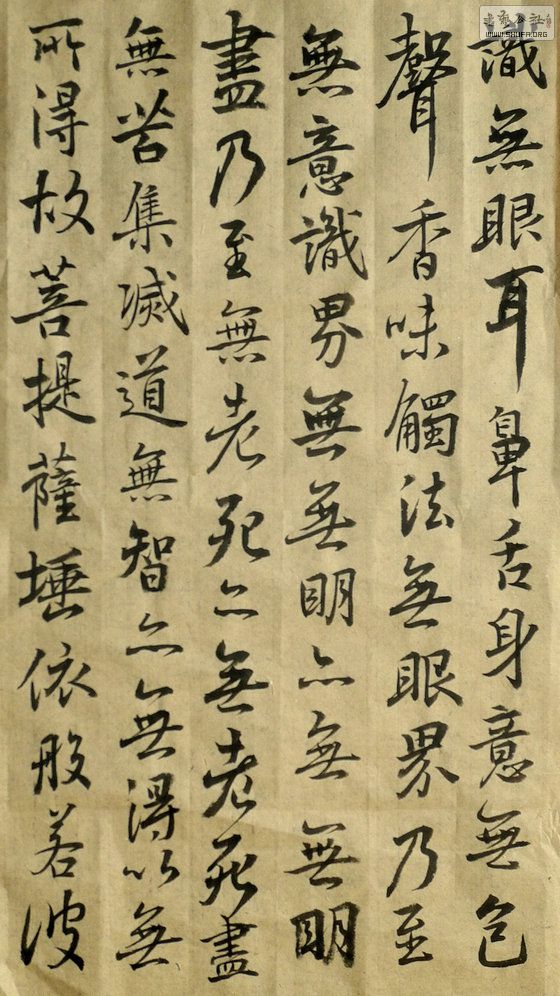 識無眼耳鼻舌身意無色
聲香味觸法無眼界乃至
無意識界無無明亦無無明
盡乃至無老死亦無老死盡
無苦集滅道無智亦無得以無
所得故菩提薩埵依般若波
WWW.SHUFA.ORG